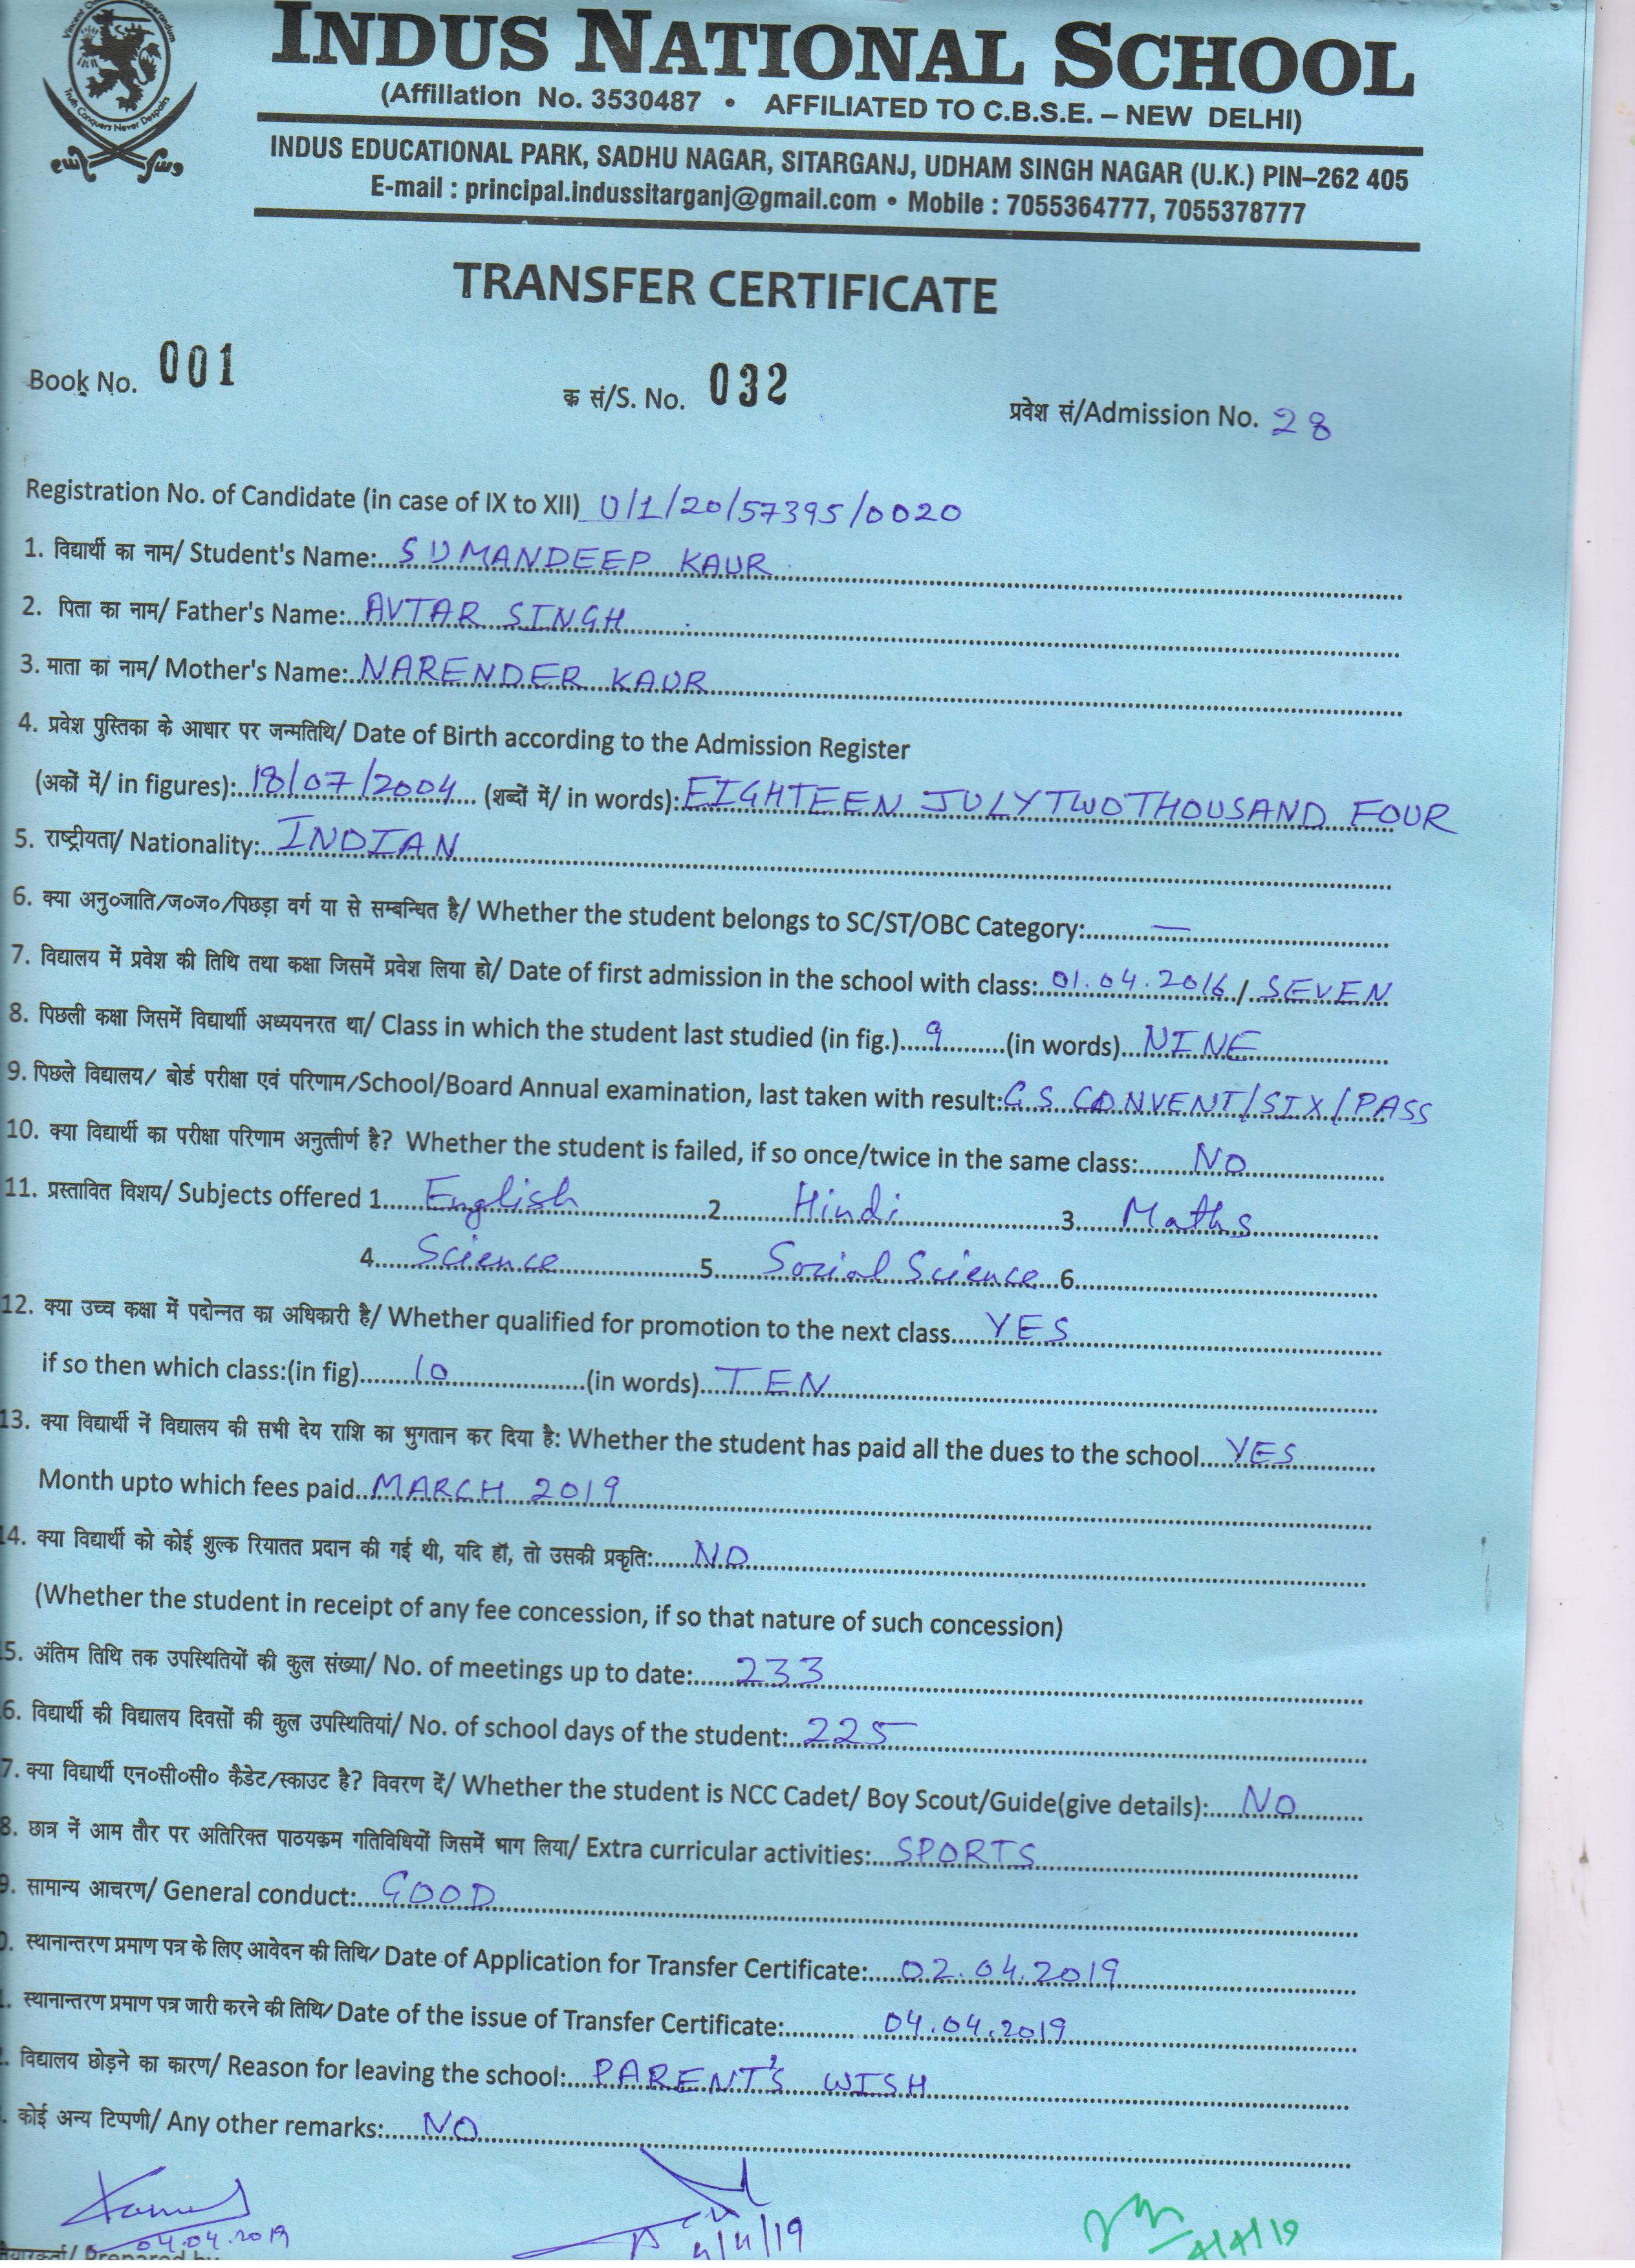 INDUS NATIONAL SCHOOL
Truth Conquers Never Despairs
(Affiliation No. 3530487 • AFFILIATED TO C.B.S.E. – NEW DELHI)
INDUS EDUCATIONAL PARK, SADHU NAGAR, SITARGANJ, UDHAM SINGH NAGAR (U.K.) PIN–262 405
E-mail : principal.indussitarganj@gmail.com • Mobile : 7055364777, 7055378777
TRANSFER CERTIFICATE
Book No. 001 क्र सं/S. No. 032 प्रवेश सं/Admission No. 28
Registration No. of Candidate (in case of IX to XII) U/1/20/57395/0020
1. विद्यार्थी का नाम/ Student's Name: SUMANDEEP KAUR
2. पिता का नाम/ Father's Name: AVTAR SINGH
3. माता का नाम/ Mother's Name: NARENDER KAUR
4. प्रवेश पुस्तिका के आधार पर जन्मतिथि/ Date of Birth according to the Admission Register
(अकों में/ in figures): 18/07/2004 (शब्दों में/ in words): EIGHTEEN JULY TWO THOUSAND FOUR
5. राष्ट्रीयता/ Nationality: INDIAN
6. क्या अनु०जाति/ज०ज०/पिछड़ा वर्ग या से सम्बन्धित है/ Whether the student belongs to SC/ST/OBC Category: —
7. विद्यालय में प्रवेश की तिथि तथा कक्षा जिसमें प्रवेश लिया हो/ Date of first admission in the school with class: 01.04.2016 / SEVEN
8. पिछली कक्षा जिसमें विद्यार्थी अध्ययनरत था/ Class in which the student last studied (in fig.) 9 (in words) NINE
9. पिछले विद्यालय/ बोर्ड परीक्षा एवं परिणाम/School/Board Annual examination, last taken with result: G S CONVENT/SIX/PASS
10. क्या विद्यार्थी का परीक्षा परिणाम अनुत्तीर्ण है? Whether the student is failed, if so once/twice in the same class: NO
11. प्रस्तावित विशय/ Subjects offered 1 English 2 Hindi 3 Maths
4 Science 5 Social Science 6
12. क्या उच्च कक्षा में पदोन्नत का अधिकारी है/ Whether qualified for promotion to the next class YES
if so then which class:(in fig) 10 (in words) TEN
13. क्या विद्यार्थी नें विद्यालय की सभी देय राशि का भुगतान कर दिया है: Whether the student has paid all the dues to the school YES
Month upto which fees paid MARCH 2019
14. क्या विद्यार्थी को कोई शुल्क रियातत प्रदान की गई थी, यदि हॉ, तो उसकी प्रकृति: NO
(Whether the student in receipt of any fee concession, if so that nature of such concession)
5. अंतिम तिथि तक उपस्थितियों की कुल संख्या/ No. of meetings up to date: 233
6. विद्यार्थी की विद्यालय दिवसों की कुल उपस्थितियां/ No. of school days of the student: 225
7. क्या विद्यार्थी एन०सी०सी० कैडेट/स्काउट है? विवरण दें/ Whether the student is NCC Cadet/ Boy Scout/Guide(give details): NO
8. छात्र नें आम तौर पर अतिरिक्त पाठयक्रम गतिविधियों जिसमें भाग लिया/ Extra curricular activities: SPORTS
9. सामान्य आचरण/ General conduct: GOOD
स्थानान्तरण प्रमाण पत्र के लिए आवेदन की तिथि/ Date of Application for Transfer Certificate: 02.04.2019
स्थानान्तरण प्रमाण पत्र जारी करने की तिथि/ Date of the issue of Transfer Certificate: 04.04.2019
विद्यालय छोड़ने का कारण/ Reason for leaving the school: PARENT'S WISH
कोई अन्य टिप्पणी/ Any other remarks: NO
04.04.2019 4/4/19 4/4/19
Prepared by